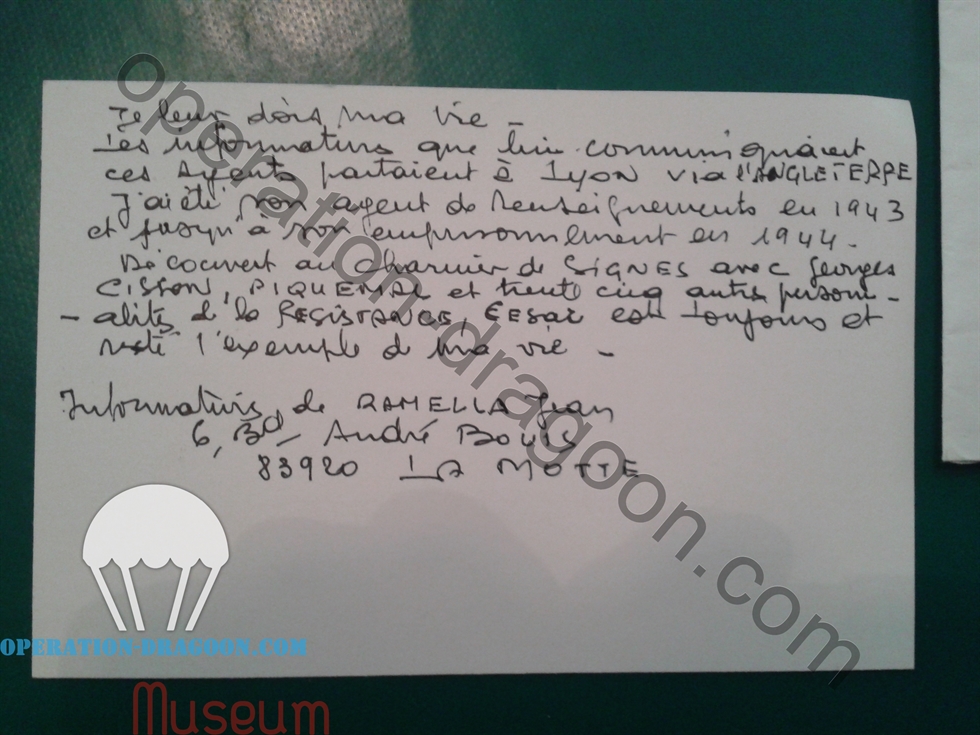 Je leur dois ma vie -
Les informations que lui communiquaient
ces Agents partaient à Lyon via l'ANGLETERRE
J'ai été son agent de Renseignements en 1943
et jusqu'à son emprisonnement en 1944.
Découvert au charnier de SIGNES avec Georges
CISSON, PIQUEMAL et trente cinq autres person-
-alités de la RESISTANCE, César est toujours et
resté l'exemple de ma vie -
Informations de RAMELLA Jean
6, Bd - André Bouis
83920 LA MOTTE
operation-dragoon.com
OPERATION-DRAGOON.COM
Museum